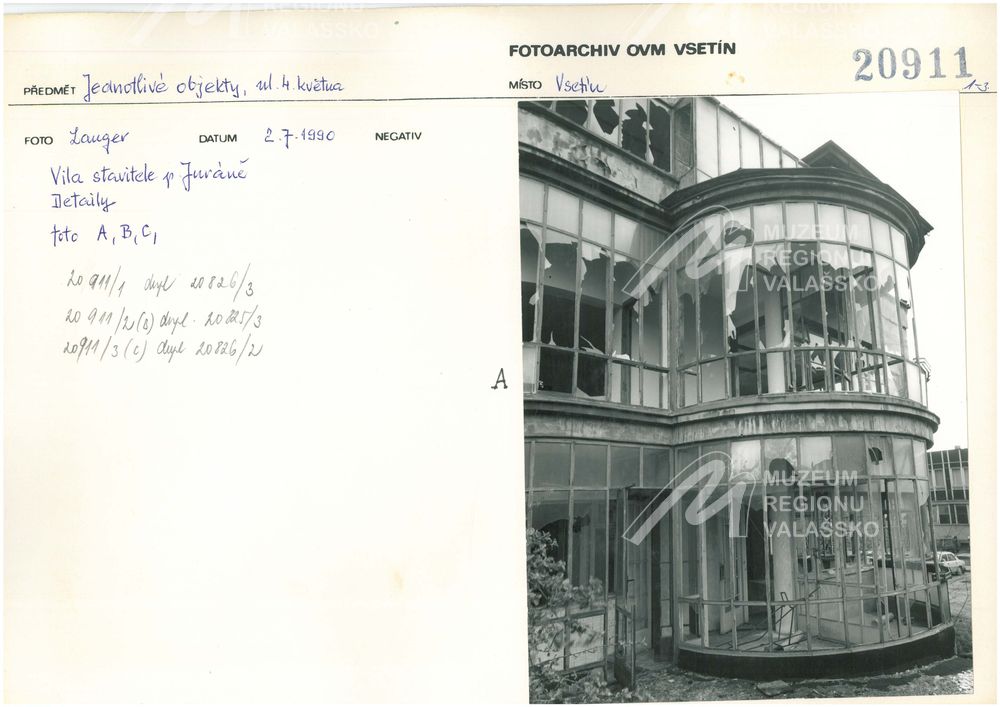 FOTOARCHIV OVM VSETÍN
20911
PŘEDMĚT Jednotlivé objekty, ul. 4. května
MÍSTO Vsetín
1-3
FOTO Langer DATUM 2.7.1990 NEGATIV
Vila stavitele p Juráně
Detaily
foto A, B, C,
20911/1 dupl 20826/3
20911/2 (B) dupl. 20825/3
20911/3 (C) dupl 20826/2
A
MUZEUM
REGIONU
VALAŠSKO
MUZEUM
REGIONU
VALAŠSKO
REGIONU
VALAŠSKO
REGIONU
VALAŠSKO